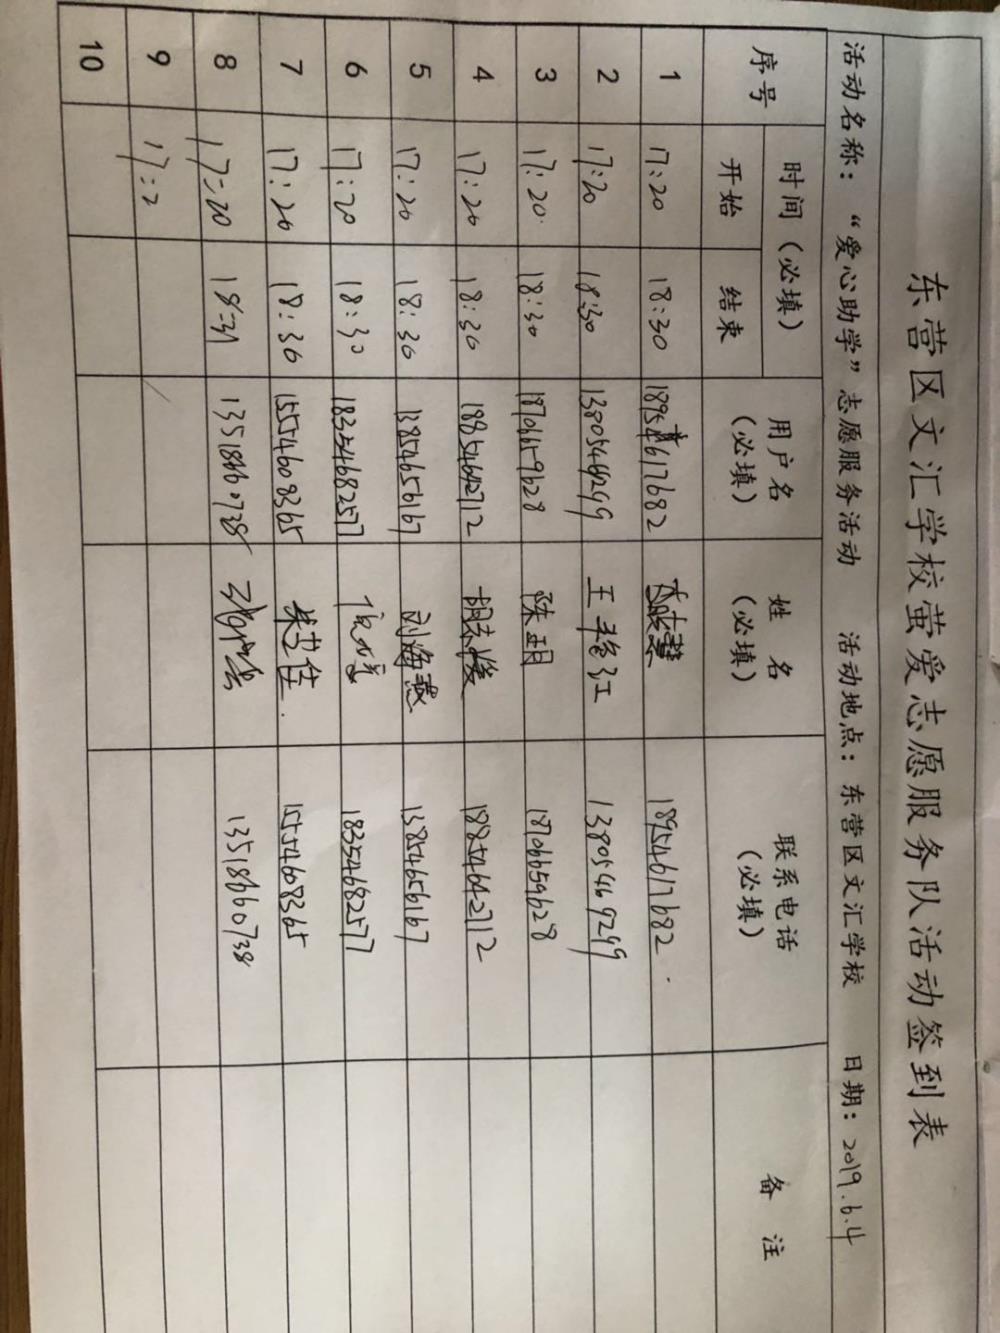 东营区文汇学校萤爱志愿服务队活动签到表
活动名称：“爱心助学”志愿服务活动 活动地点：东营区文汇学校 日期：2019.6.4
序号 时间（必填） 用户名（必填） 姓名（必填） 联系电话（必填） 备注
开始 结束
1 17:20 18:30 18954617682 18954617682
2 17:20 18:30 13805469299 王艳红 13805469299
3 17:20 18:30 18706659628 陈玥 18706659628
4 17:20 18:30 18854642712 胡志俊 18854642712
5 17:20 18:30 13854656167 刘海燕 13854656167
6 17:20 18:30 18354682577 18354682577
7 17:20 18:30 15554608365 朱芸佳 15554608365
8 17=20 13518660738 13518660738
9 17:2
10